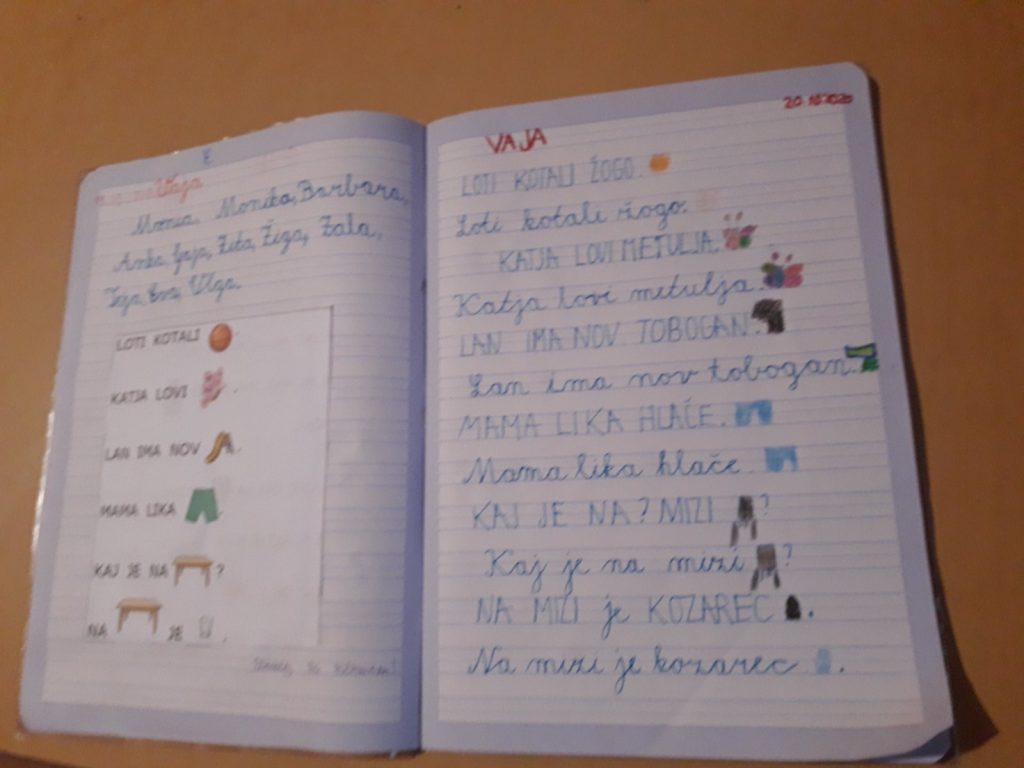 E
Vaja
Monika, Barbara,
Anka, Gaja, Žiga, Zala,
Eva, Olga.
LOTI KOTALI .
KATJA LOVI .
LAN IMA NOV .
MAMA LIKA .
KAJ JE NA ?
NA JE .
20.10.2020
VAJA
LOTI KOTALI ŽOGO.
Loti kotali žogo.
KATJA LOVI METULJA.
Katja lovi metulja.
LAN IMA NOV TOBOGAN.
Lan ima nov tobogan.
MAMA LIKA HLAČE.
Mama lika hlače.
KAJ JE NA? MIZI ?
Kaj je na mizi ?
NA MIZI je KOZAREC .
Na mizi je kozarec .